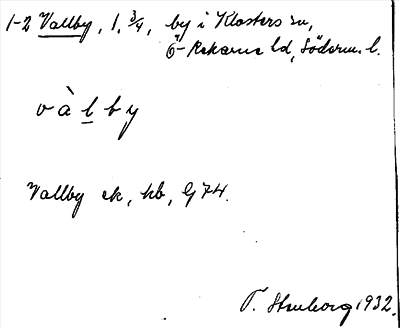 1-2 Vallby, 1. 3/4, by i Klosters sn,
Ö-Rekarne hd, Söderm. l.
v à l b y
Vallby ek, hb, G74.
1932.